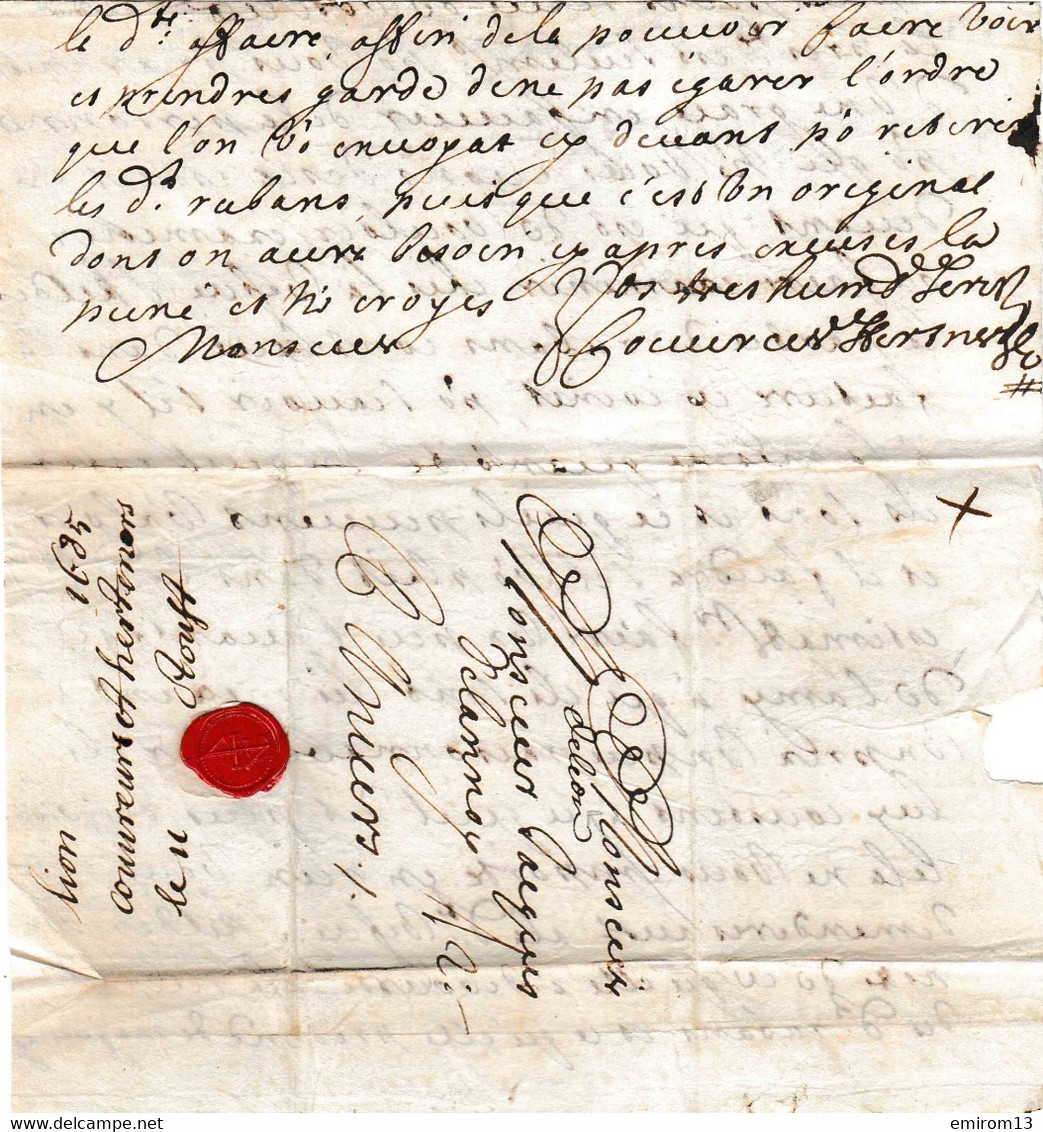 le d.te affaere affin de la pouuoir faere voir
et prendres garde dene pas egarer l'ordre
que l'on vo envoyat cy devant po retirer
les d.t rubans, puis que c'est vn original
dont on aura besoin cy apres excuses la
peine et
croyes Vos tres humb
Monsieur
A Monsieur
Monsieur Jacques
delion
Delannoy
A Anuers /.
lion 1685
couureurs et hertsners
le 11 Aoust
delcampe.net
emirom13